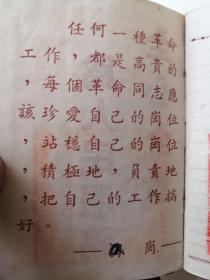 任何一種革命
工作，都是高貴的
，每個革命同志應
該珍愛自己的崗位
，站穩自己的崗位
，積極地，負責地
把自己的工作搞
好。
崗.